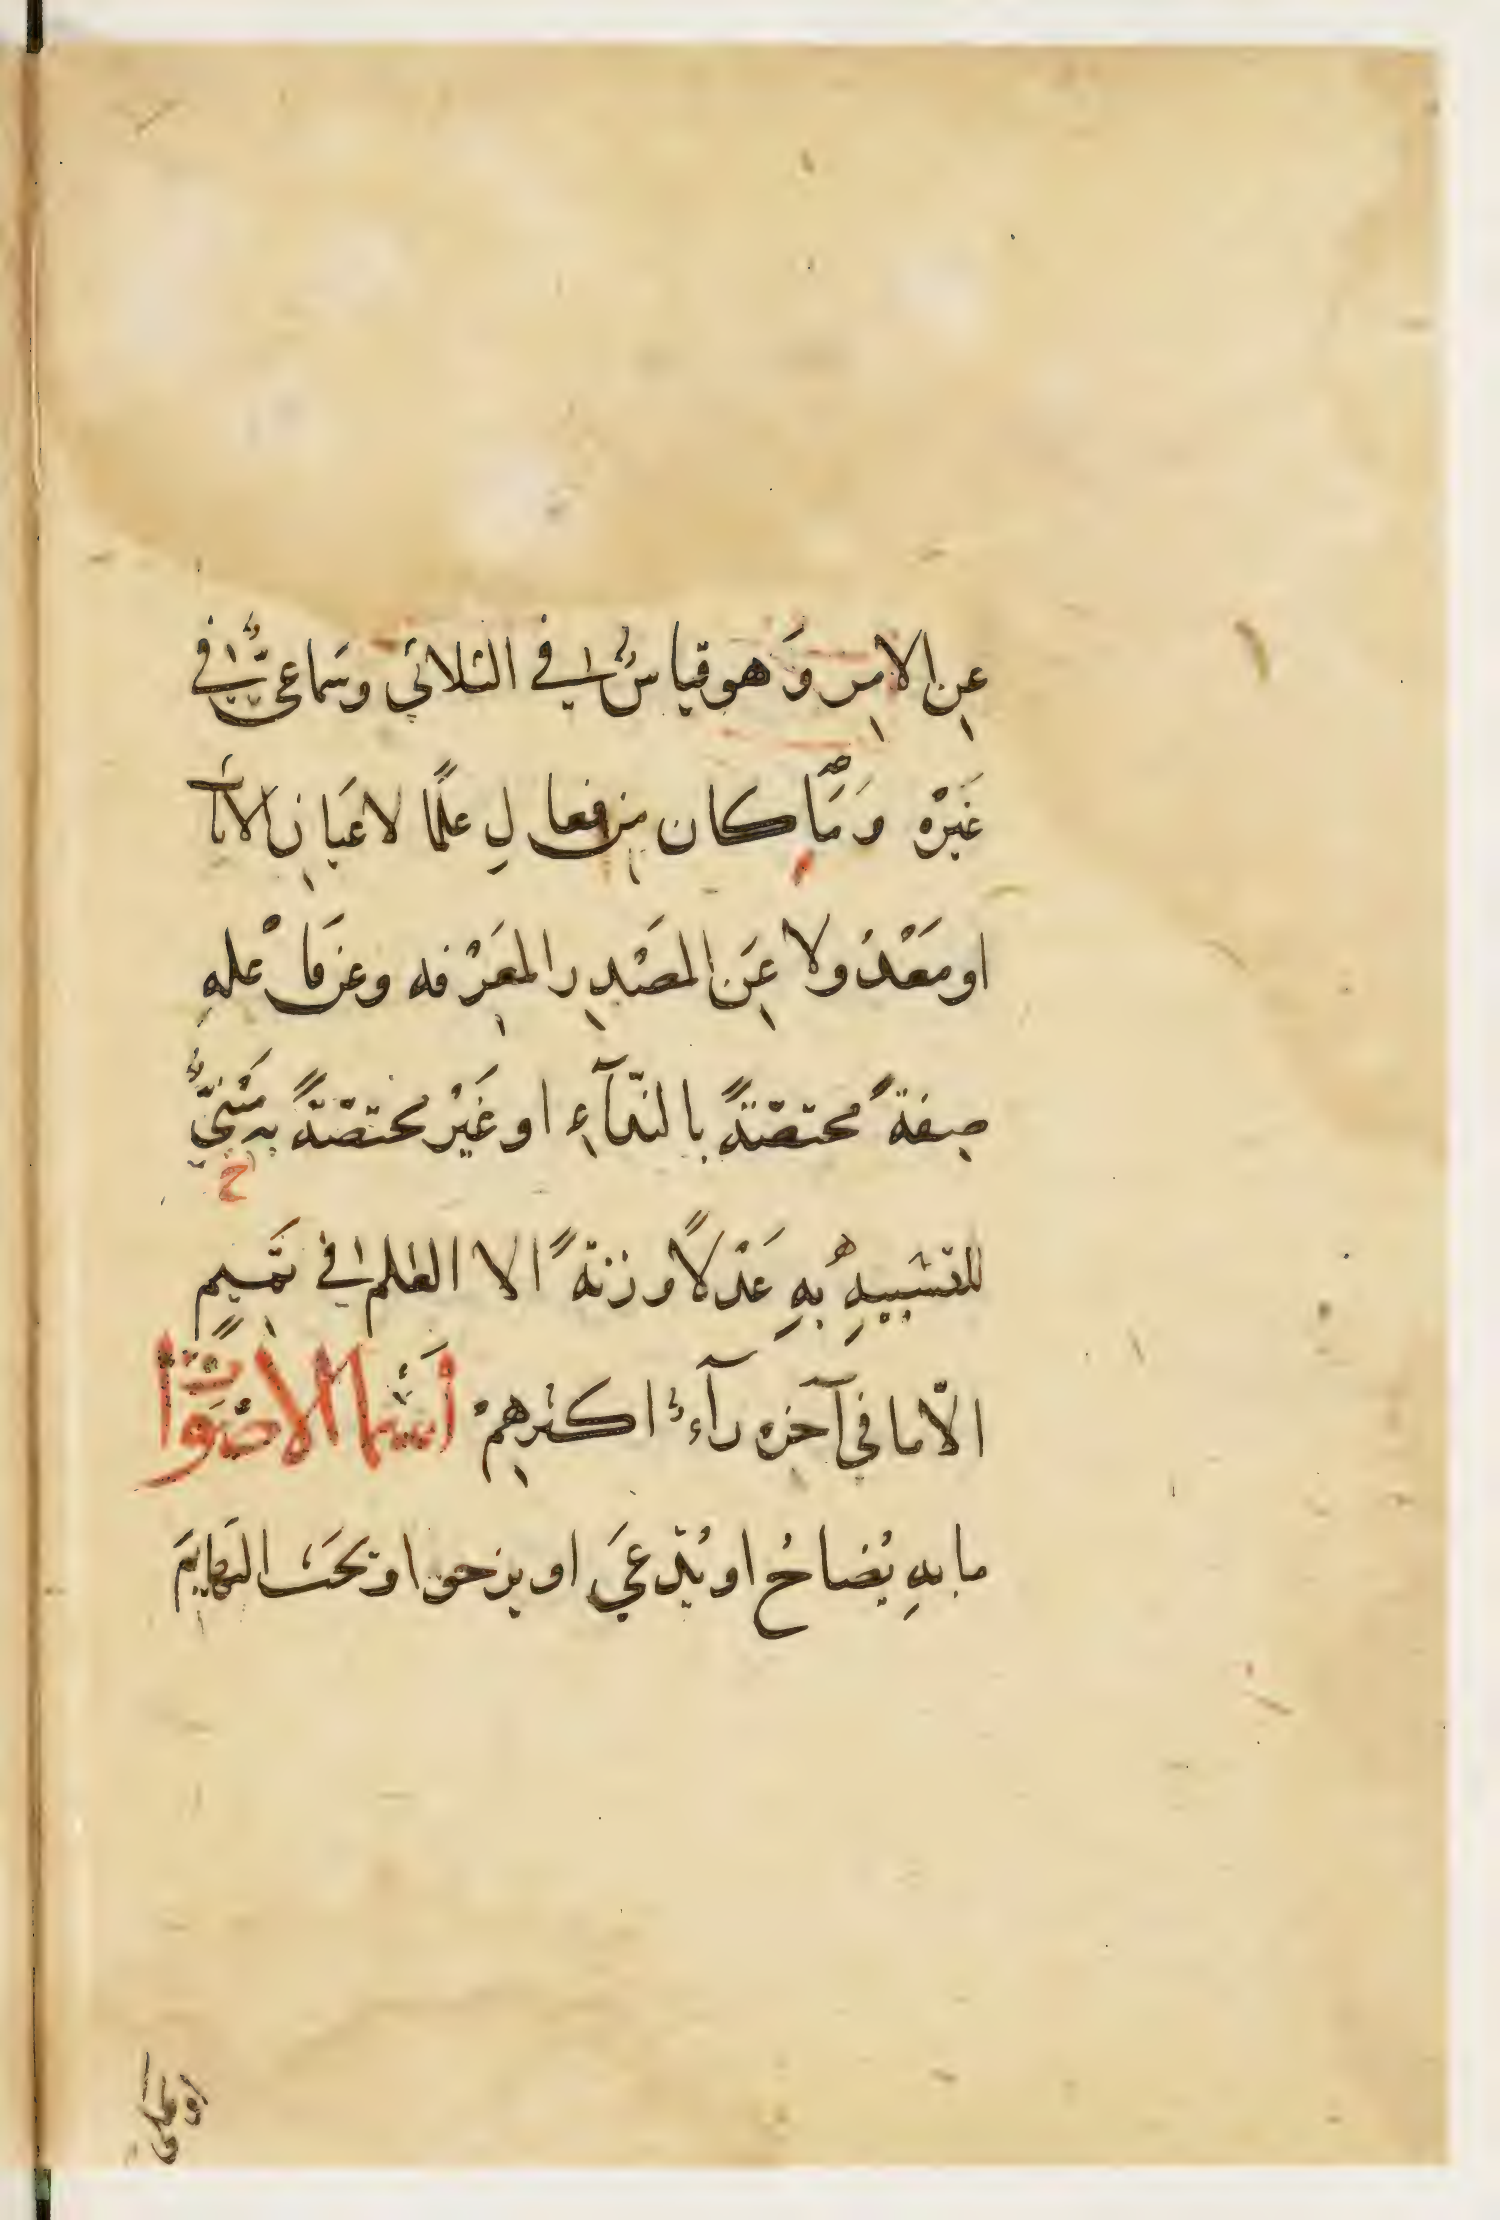 عنِ الامِرِ وَهو قياسٌ في الثلاثي وسَماعيٌّ في
غَيْرْه وَمَّا كان من فعالِ علمًا لاعَيانِ الاناث
او مَعْدُولا عَنِ المصْدرِ المعَرْفه وعن فاعْلهِ
صفةً مختصّتةً بالندآءِ او غَيْر مختصّتةً به مَبْنيٌّ
للتشبيهِ بهِ عَدْلًا وزنةً الا العلم في تَميمٍ
الاّ ما في آخره رآءٌ اكثرهِمْ اَسْما الاصْوَات
ما بهِ يُضاحُ او يُدّعيَ او يزحو او يحَث البَهايمَ
او يحكي